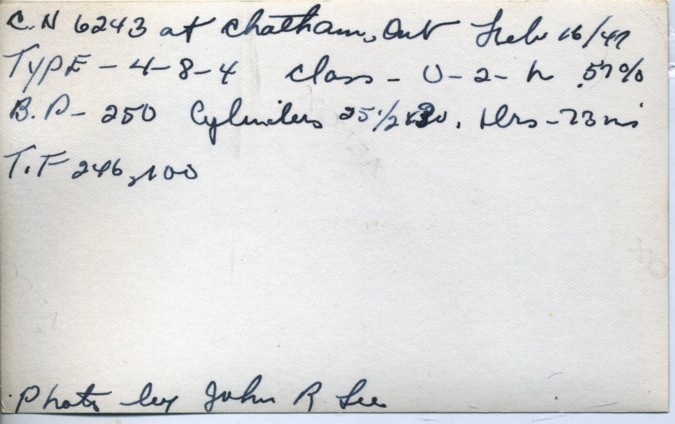 C.N 6243 at Chatham, Ont Feb 16/47
TYPE - 4-8-4 Class - U-2-h .57%
B.P - 250 Cylinders 25 1/2 x 30. Drs - 73 ins
T.F 246,100
Photo by John R Lee